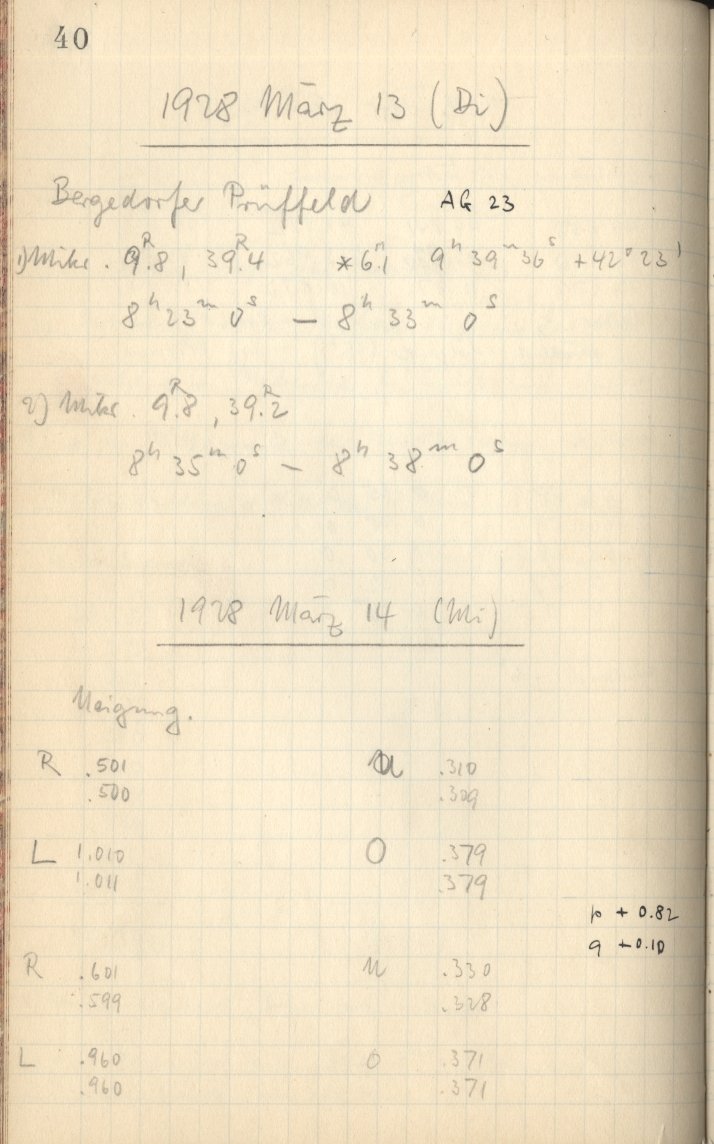 40
1928 März 13 (Di)
Bergedorfer Prüffeld AG 23
1) Mikr. 9.ᴿ8, 39.ᴿ4 * 6.ᵐ1 9ʰ 39ᵐ 36ˢ +42° 23'
8ʰ 23ᵐ 0ˢ – 8ʰ 33ᵐ 0ˢ
2) Mikr. 9.ᴿ8, 39.ᴿ2
8ʰ 35ᵐ 0ˢ – 8ʰ 38ᵐ 0ˢ
1928 März 14 (Mi)
Neigung.
R .501 U .310
.500 .309
L 1.010 O .379
1.011 .379
p + 0.82
q + 0.10
R .601 U .330
.599 .328
L .960 O .371
.960 .371